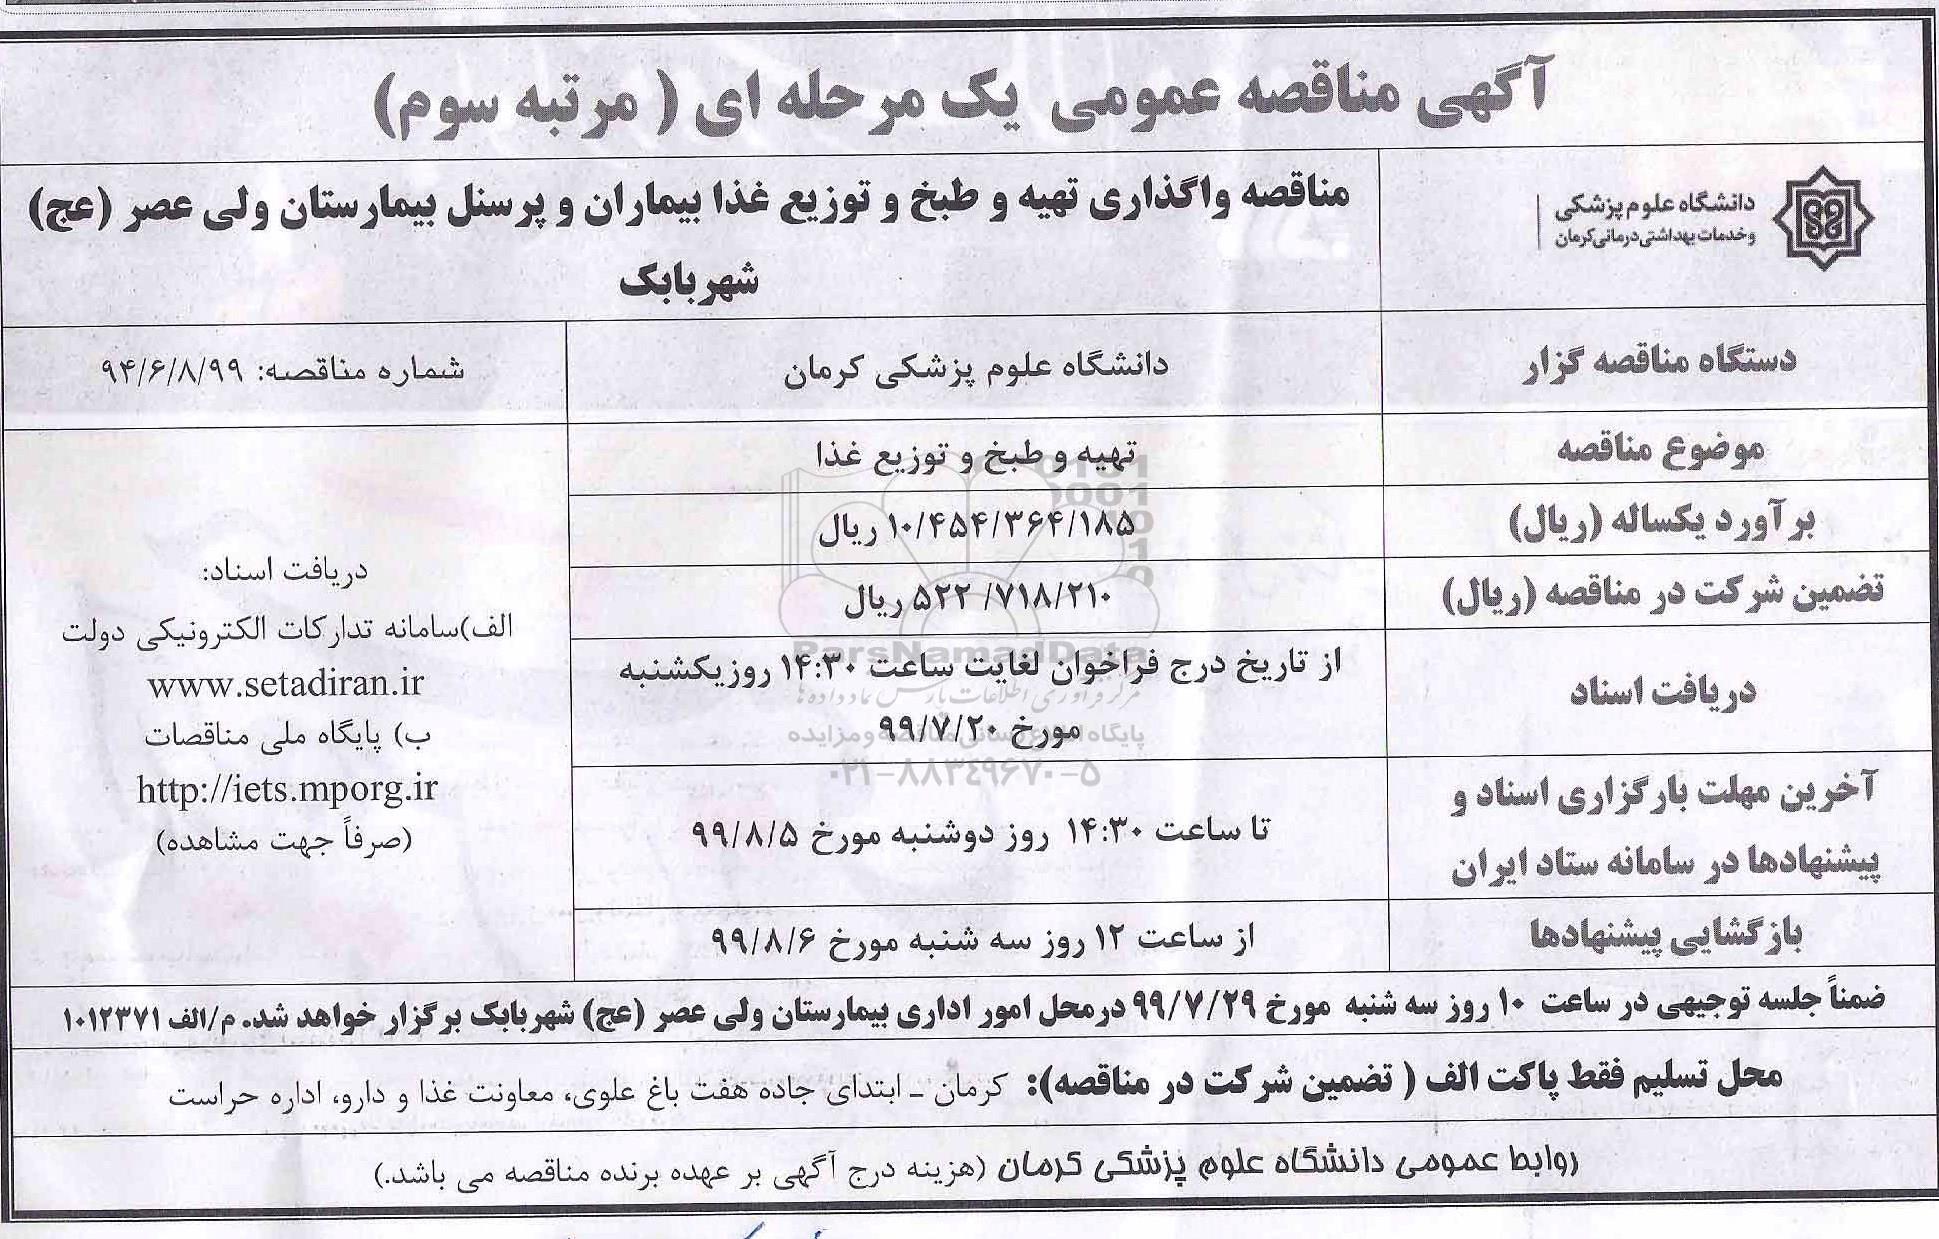 آگهی مناقصه عمومی یک مرحله ای ( مرتبه سوم)
دانشگاه علوم پزشکی
و خدمات بهداشتی درمانی کرمان
مناقصه واگذاری تهیه و طبخ و توزیع غذا بیماران و پرسنل بیمارستان ولی عصر (عج)
شهربابک
دستگاه مناقصه گزار
دانشگاه علوم پزشکی کرمان
شماره مناقصه: ۹۴/۶/۸/۹۹
موضوع مناقصه
تهیه و طبخ و توزیع غذا
برآورد یکساله (ریال)
۱۰/۴۵۴/۳۶۴/۱۸۵ ریال
تضمین شرکت در مناقصه (ریال)
۵۲۲ /۷۱۸/۲۱۰ ریال
دریافت اسناد
از تاریخ درج فراخوان لغایت ساعت ۱۴:۳۰ روز یکشنبه
مورخ ۹۹/۷/۲۰
آخرین مهلت بارگزاری اسناد و
پیشنهادها در سامانه ستاد ایران
تا ساعت ۱۴:۳۰ روز دوشنبه مورخ ۹۹/۸/۵
بازگشایی پیشنهادها
از ساعت ۱۲ روز سه شنبه مورخ ۹۹/۸/۶
دریافت اسناد:
الف)سامانه تدارکات الکترونیکی دولت
www.setadiran.ir
ب) پایگاه ملی مناقصات
http://iets.mporg.ir
(صرفاً جهت مشاهده)
ParsNamadData
مرکز فرآوری اطلاعات پارس نماد داده ها
پایگاه اطلاع رسانی مناقصه و مزایده
۰۲۱-۸۸۳۴۹۶۷۰-۵
ضمناً جلسه توجیهی در ساعت ۱۰ روز سه شنبه مورخ ۹۹/۷/۲۹ درمحل امور اداری بیمارستان ولی عصر (عج) شهربابک برگزار خواهد شد. م/الف ۱۰۱۲۳۷۱
محل تسلیم فقط پاکت الف ( تضمین شرکت در مناقصه): کرمان ـ ابتدای جاده هفت باغ علوی، معاونت غذا و دارو، اداره حراست
روابط عمومی دانشگاه علوم پزشکی کرمان (هزینه درج آگهی بر عهده برنده مناقصه می باشد.)